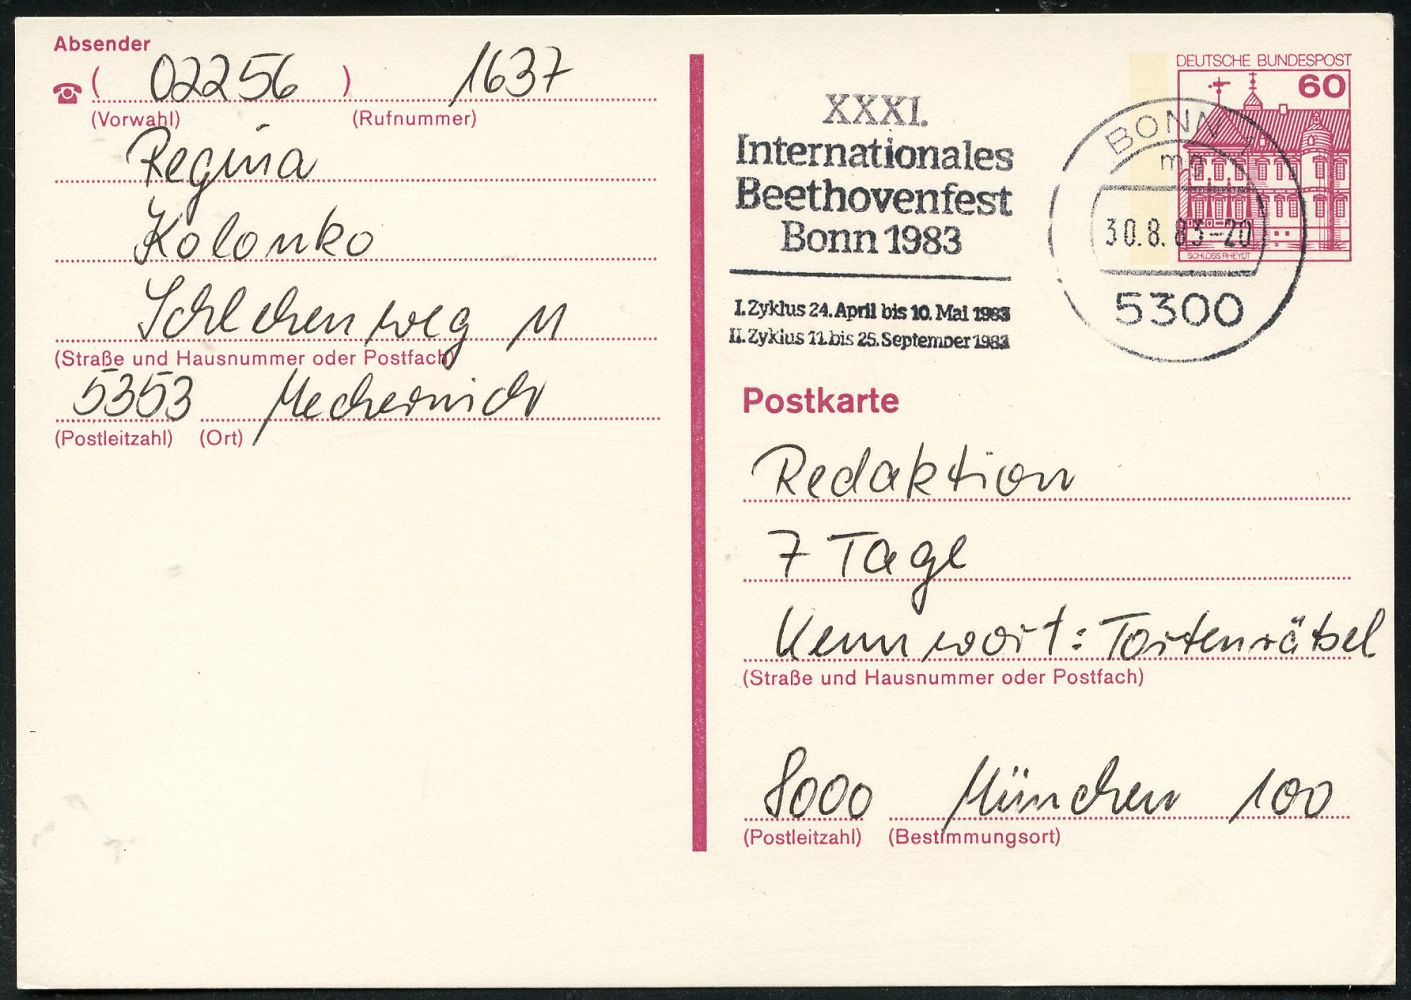 Absender
( 02256 ) 1637
(Vorwahl) (Rufnummer)
Regina
Kolonko
Schlehenweg 11
(Straße und Hausnummer oder Postfach)
5353 Mechernich
(Postleitzahl) (Ort)
DEUTSCHE BUNDESPOST
60
SCHLOSS RHEYDT
XXXI.
Internationales
Beethovenfest
Bonn 1983
I. Zyklus 24. April bis 10. Mai 1983
II. Zyklus 11. bis 25. September 1983
BONN 1
30.8.83-20
5300
Postkarte
Redaktion
7 Tage
Kennwort: Tortenrätsel
(Straße und Hausnummer oder Postfach)
8000 München 100
(Postleitzahl) (Bestimmungsort)